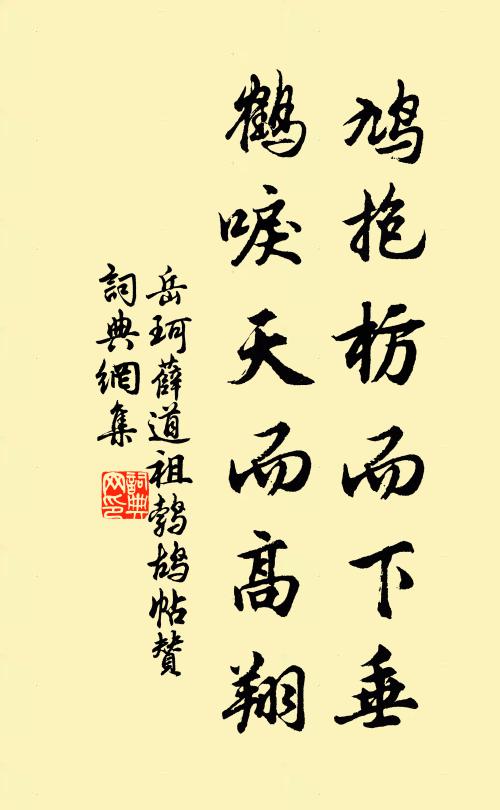 鳩抱枋而下垂
鶴唳天而高翔
岳珂薛道祖鵓鴣帖贊
詞典網集
詞典網印